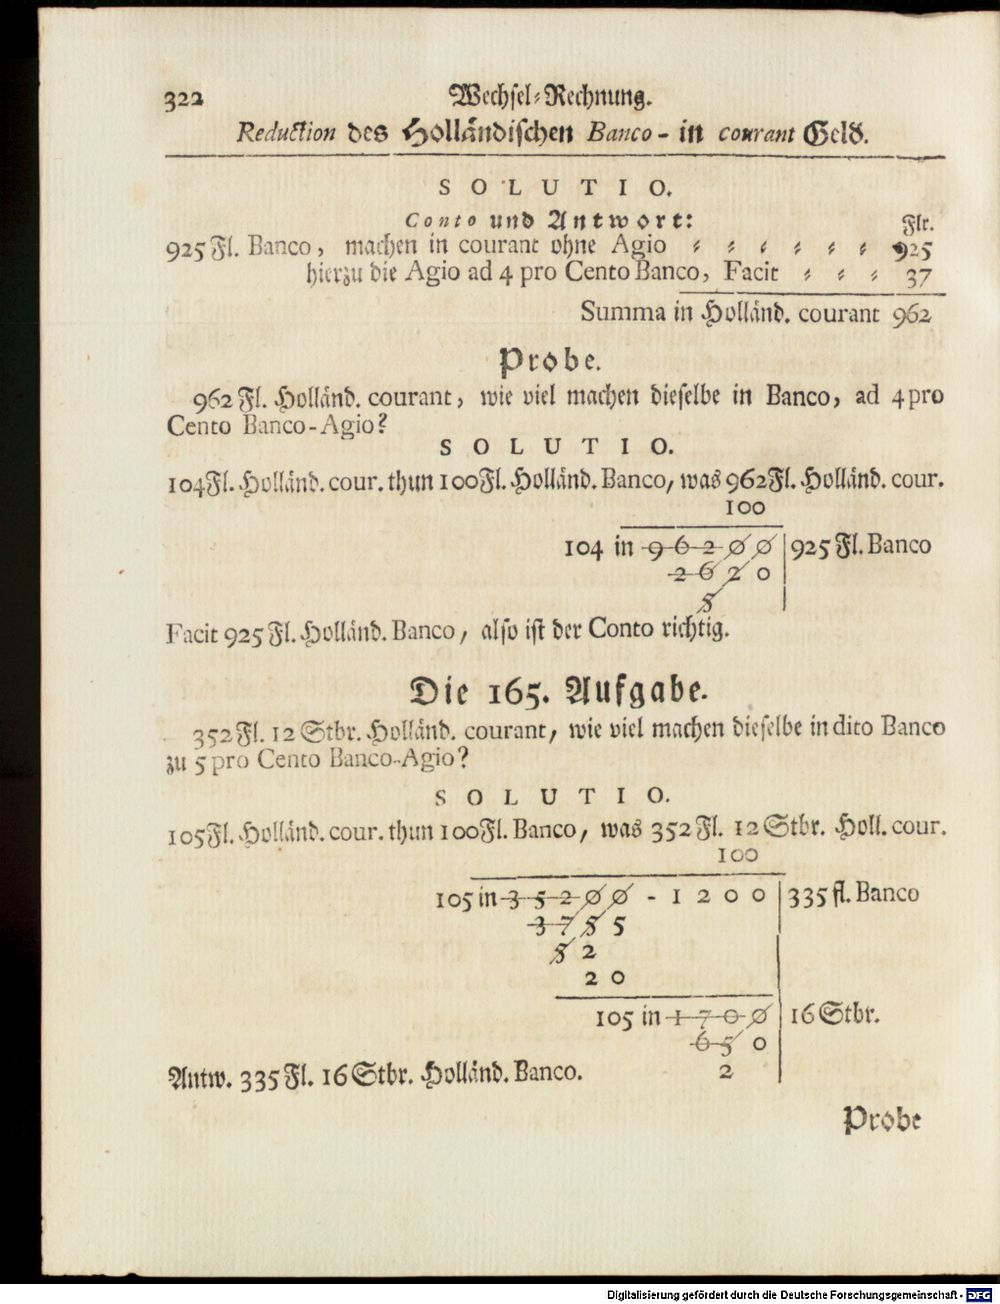 322 Wechsel-Rechnung.
Reduction des Holländischen Banco - in courant Geld.
SOLUTIO.
Conto und Antwort: Flr.
925 Fl. Banco, machen in courant ohne Agio 925
hierzu die Agio ad 4 pro Cento Banco, Facit 37
Summa in Holländ. courant 962
Probe.
962 Fl. Holländ. courant, wie viel machen dieselbe in Banco, ad 4 pro
Cento Banco-Agio?
SOLUTIO.
104 Fl. Holländ. cour. thun 100 Fl. Holländ. Banco, was 962 Fl. Holländ. cour.
100
104 in 96200 | 925 Fl. Banco
2620
5
Facit 925 Fl. Holländ. Banco, also ist der Conto richtig.
Die 165. Aufgabe.
352 Fl. 12 Stbr. Holländ. courant, wie viel machen dieselbe in dito Banco
zu 5 pro Cento Banco-Agio?
SOLUTIO.
105 Fl. Holländ. cour. thun 100 Fl. Banco, was 352 Fl. 12 Stbr. Holl. cour.
100
105 in 35200 - 1200 | 335 fl. Banco
3755
52
20
105 in 1700 | 16 Stbr.
650
Antw. 335 Fl. 16 Stbr. Holländ. Banco. 2
Probe
Digitalisierung gefördert durch die Deutsche Forschungsgemeinschaft - DFG